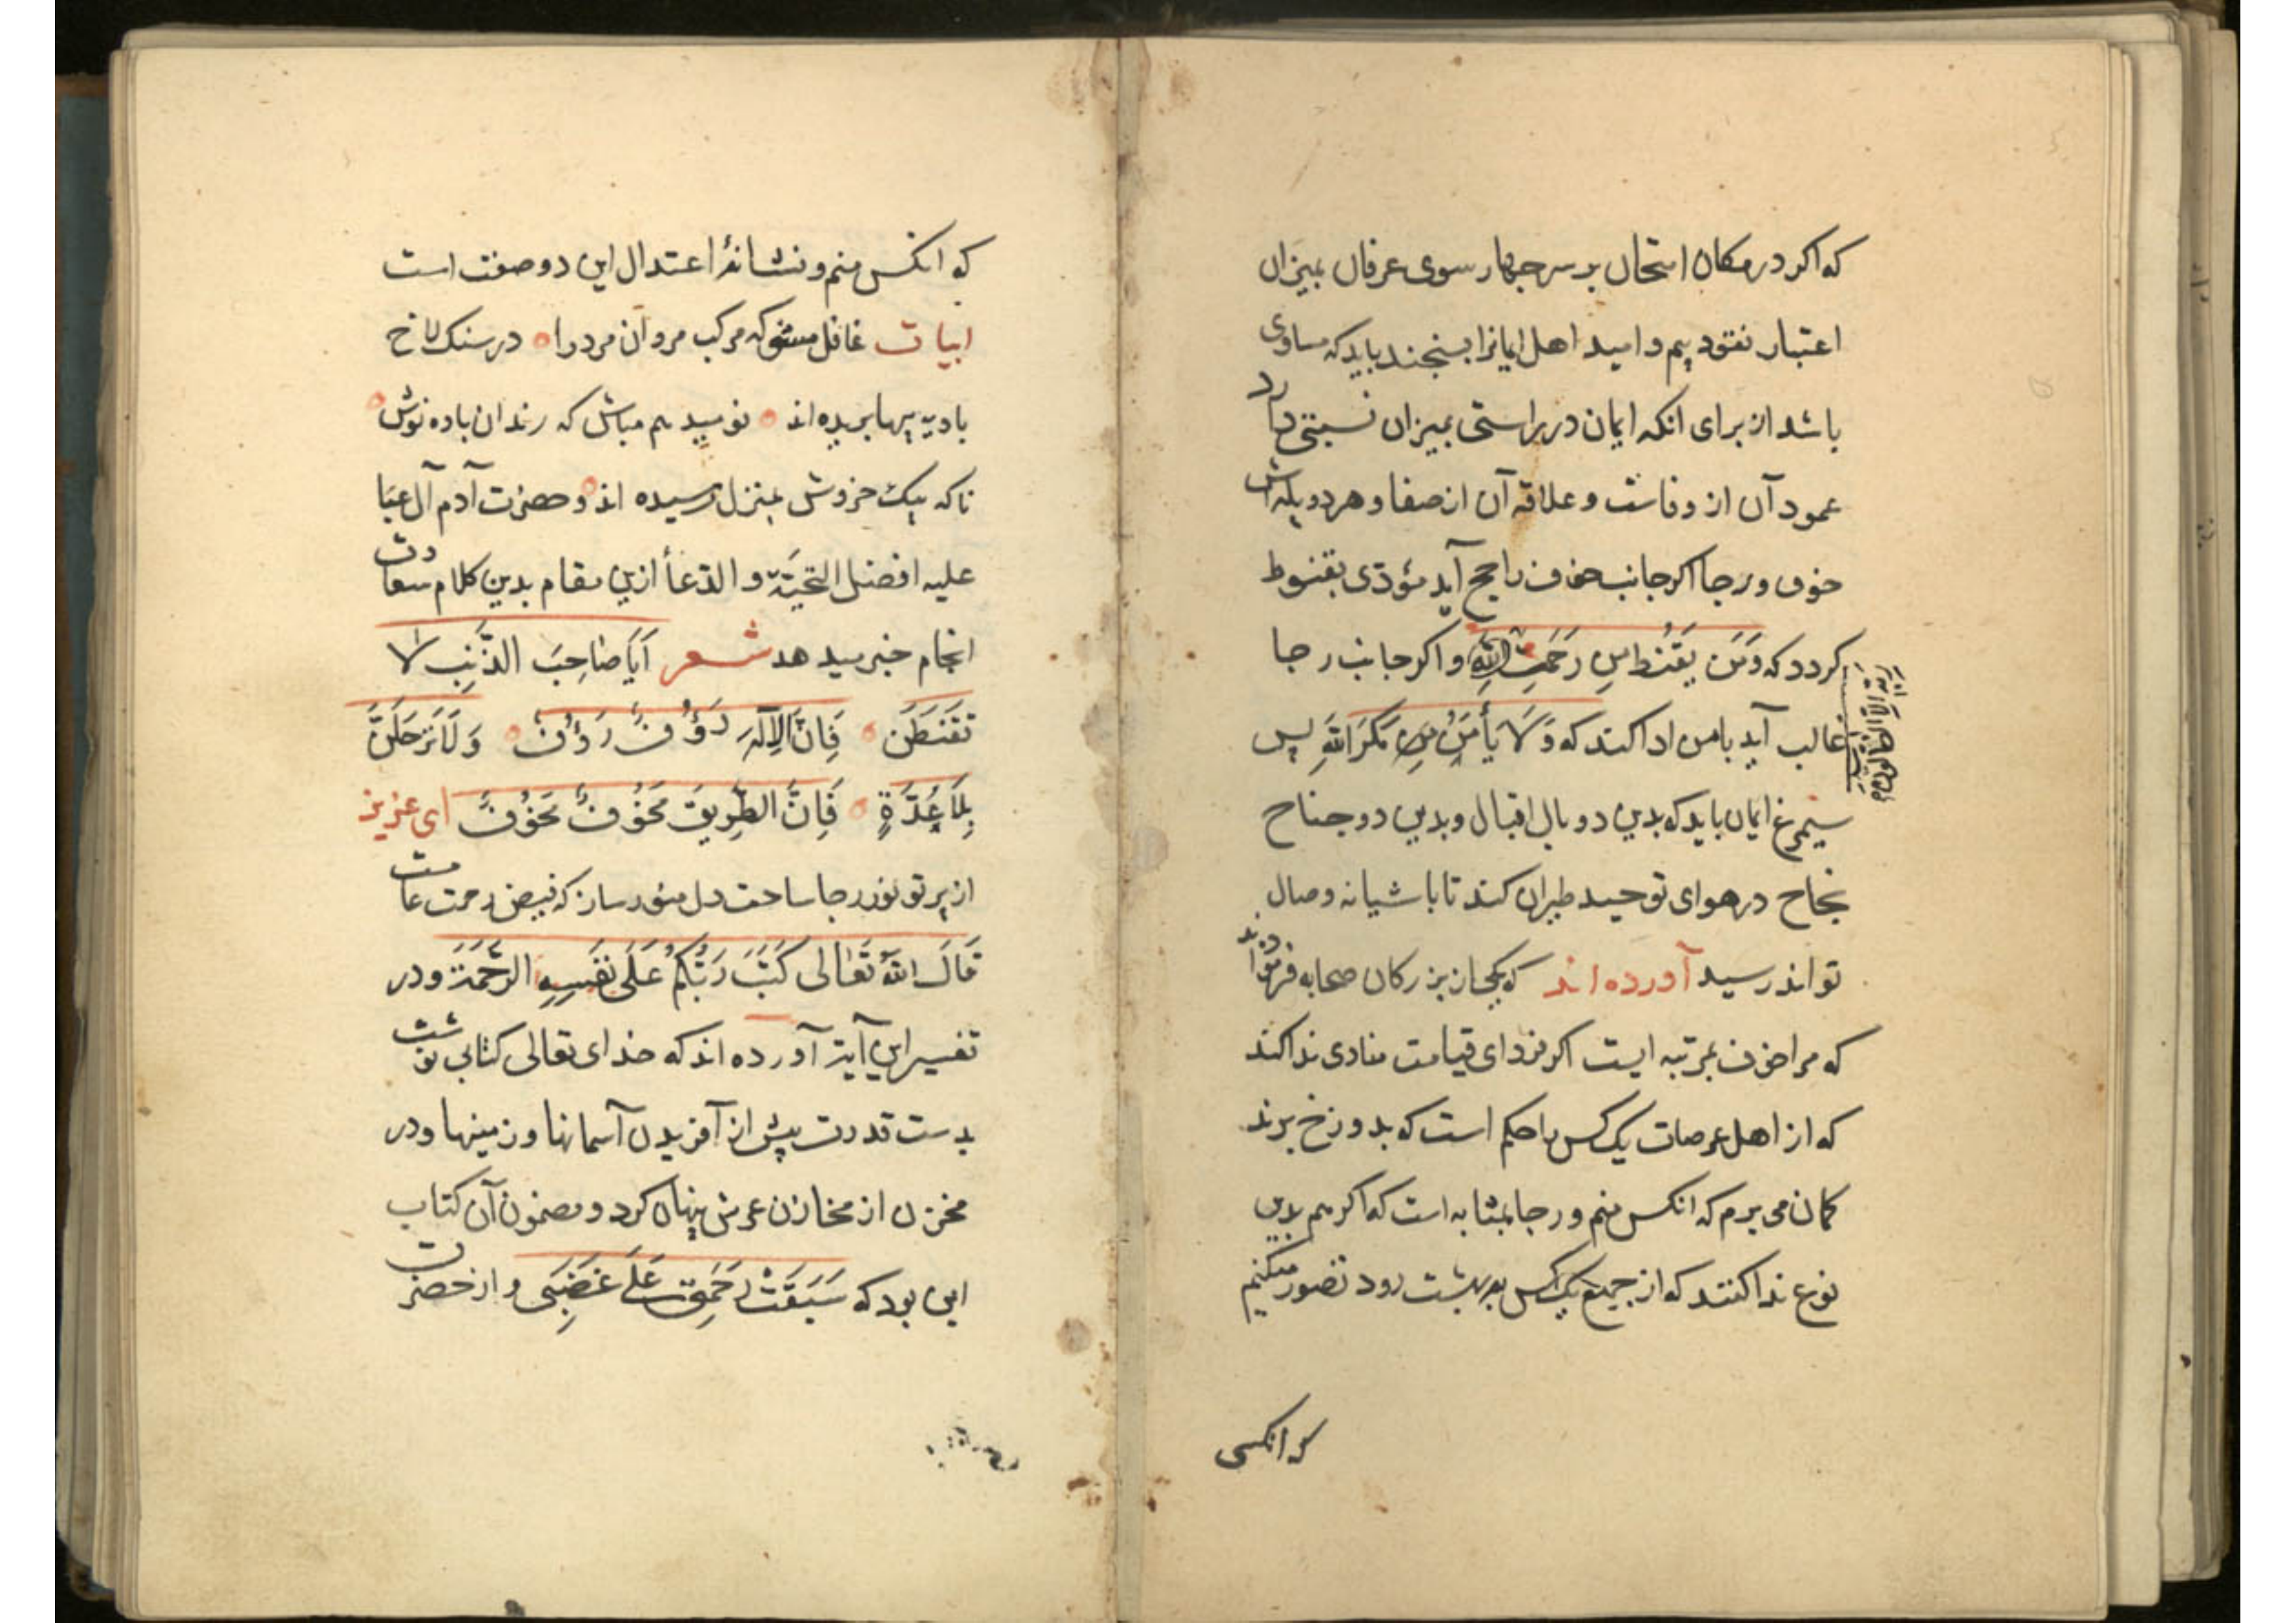 که اکر در مکان امتحان بر سر چهار سوی عرفان بمیزان
اعتبار نقود بیم و امید اهل ایمانرا بسنجند باید که مساوی
باشد از برای انکه ایمان در راستی بمیزان نسبتی دارد
عمود آن از وفاست و علاقه آن از صفا و هر دو پله اش
خوف و رجا اکر جانب خوف راجح آید مؤدّی بقنوط
کردد که وَمَن یَقنَط مِن رَحمَتِ اللهِ و اکر جانب رجا
غالب آید بامن ادا کند که وَلَا یَأمَنُ مِن مَکرَ اللهِ پس
سیمرغ ایمان باید که بدین دو بال اقبال و بدین دو جناح
نجاح در هوای توحید طیران کند تا باشیانه وصال
تواند رسید آورده اند که یکی از بزرکان صحابه فرموده اند
که مرا خوف بمرتبه ایست اکر فردای قیامت منادی ندا کند
که از اهل عرصات یک کس را حکم است که بدوزخ برند
کمان می برم که انکس منم و رجا بمثابه است که اکر هم بدین
نوع ندا کنند که از جمیع یک کس به بهشت رود تصور میکنم
که انکسی
که انکس منم و نشانهٔ اعتدال این دو صفت است
ابیات غافل مشو که مرکب مردان مرد را در سنک لاخ
بادیه پیها بریده اند نومید هم مباش که رندان باده نوش
ناکه بیک خروش بمنزل رسیده اند و حضرت آدم آل عبا
علیه افضل التحیّة و الدّعا ازین مقام بدین کلام سعادت
انجام خبر میدهد شعر اَیَا صَاحِبَ الذَّنبِ لا
تَقنَطَن فَاِنَّ الاِلَهَ رَؤُفٌ رَؤُفٌ وَلَا تَرحَلَنَّ
بِلَا عُدَّةٍ فَاِنَّ الطَّرِیقَ مَخُوفٌ مَخُوفٌ ای عزیز
از پرتو نور رجا ساحت دل منور ساز که فیض رحمت عامست
قَالَ اللهُ تَعَالی کَتَبَ رَبُّکُم عَلَی نَفسِهِ الرَّحمَةَ و در
تفسیر این آیة آورده اند که خدای تعالی کتابی نوشت
بدست قدرت پیش از آفریدن آسمانها و زمینها و در
مخزن از مخازن عرش پنهان کرد و مضمون آن کتاب
این بود که سَبَقَت رَحمَتِی عَلَی غَضَبِی و از حضرت